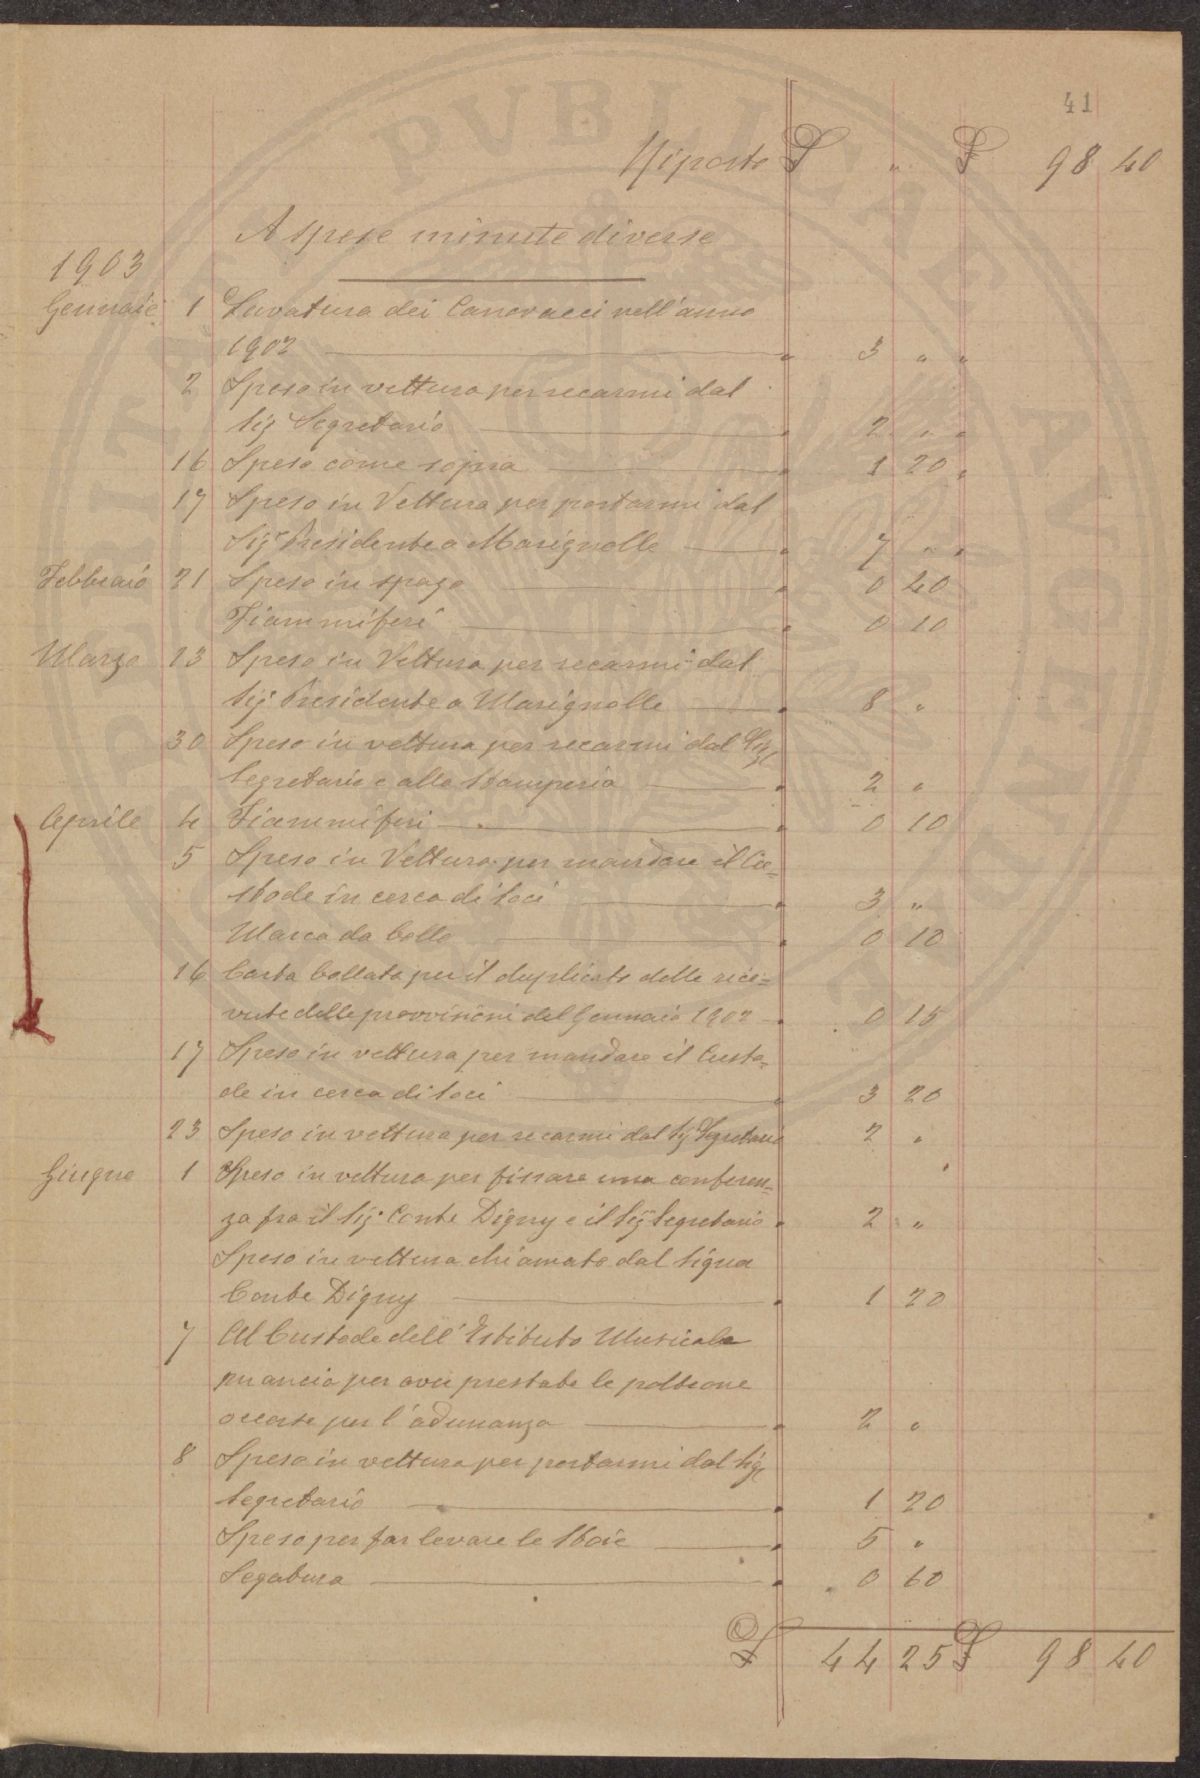 41
Riporto £ " £ 98 40
A spese minute diverse
1903
Gennaio 1 Lavatura dei Canovacci nell'anno
1902 " 3 " "
2 Speso in vettura per recarmi dal
Sig Segretario " 2 " "
16 Speso come sopra " 1 20 "
17 Speso in Vettura per portarmi dal
Sigr Presidente a Marignolle " 7 " "
Febbraio 21 Speso in spago " 0 40
Fiammiferi " 0 10
Marzo 23 Speso in Vettura per recarmi dal
Sigr Presidente a Marignolle " 8 "
30 Speso in vettura per recarmi dal Sigr
Segretario e alla Stamperia " 2 "
Aprile 4 Fiammiferi " 0 10
5 Speso in Vettura per mandare il Cu=
stode in cerca di Soci " 3 "
Marca da bollo " 0 10
16 Carta bollata per il duplicato delle rice=
vute delle provvisioni del Gennaio 1902 " 0 15
17 Speso in vettura per mandare il Custo=
de in cerca di Soci " 3 20
23 Speso in vettura per recarmi dal Sig Segretario 2 "
Giugno 1 Speso in vettura per fissare una conferen=
za fra il Sigr Conte Digny e il Sigr Segretario " 2 "
Speso in vettura chiamato dal Signor
Conte Digny " 1 20
7 Al Custode dell'Istituto Musicale
mancia per aver prestate le poltrone
occorse per l'adunanza " 2 "
8 Speso in vettura per portarmi dal Sigr
Segretario " 1 20
Speso per far levare le Stoie " 5 "
Segatura " 0 60
£ 44 25 £ 98 40
PVBLICAE